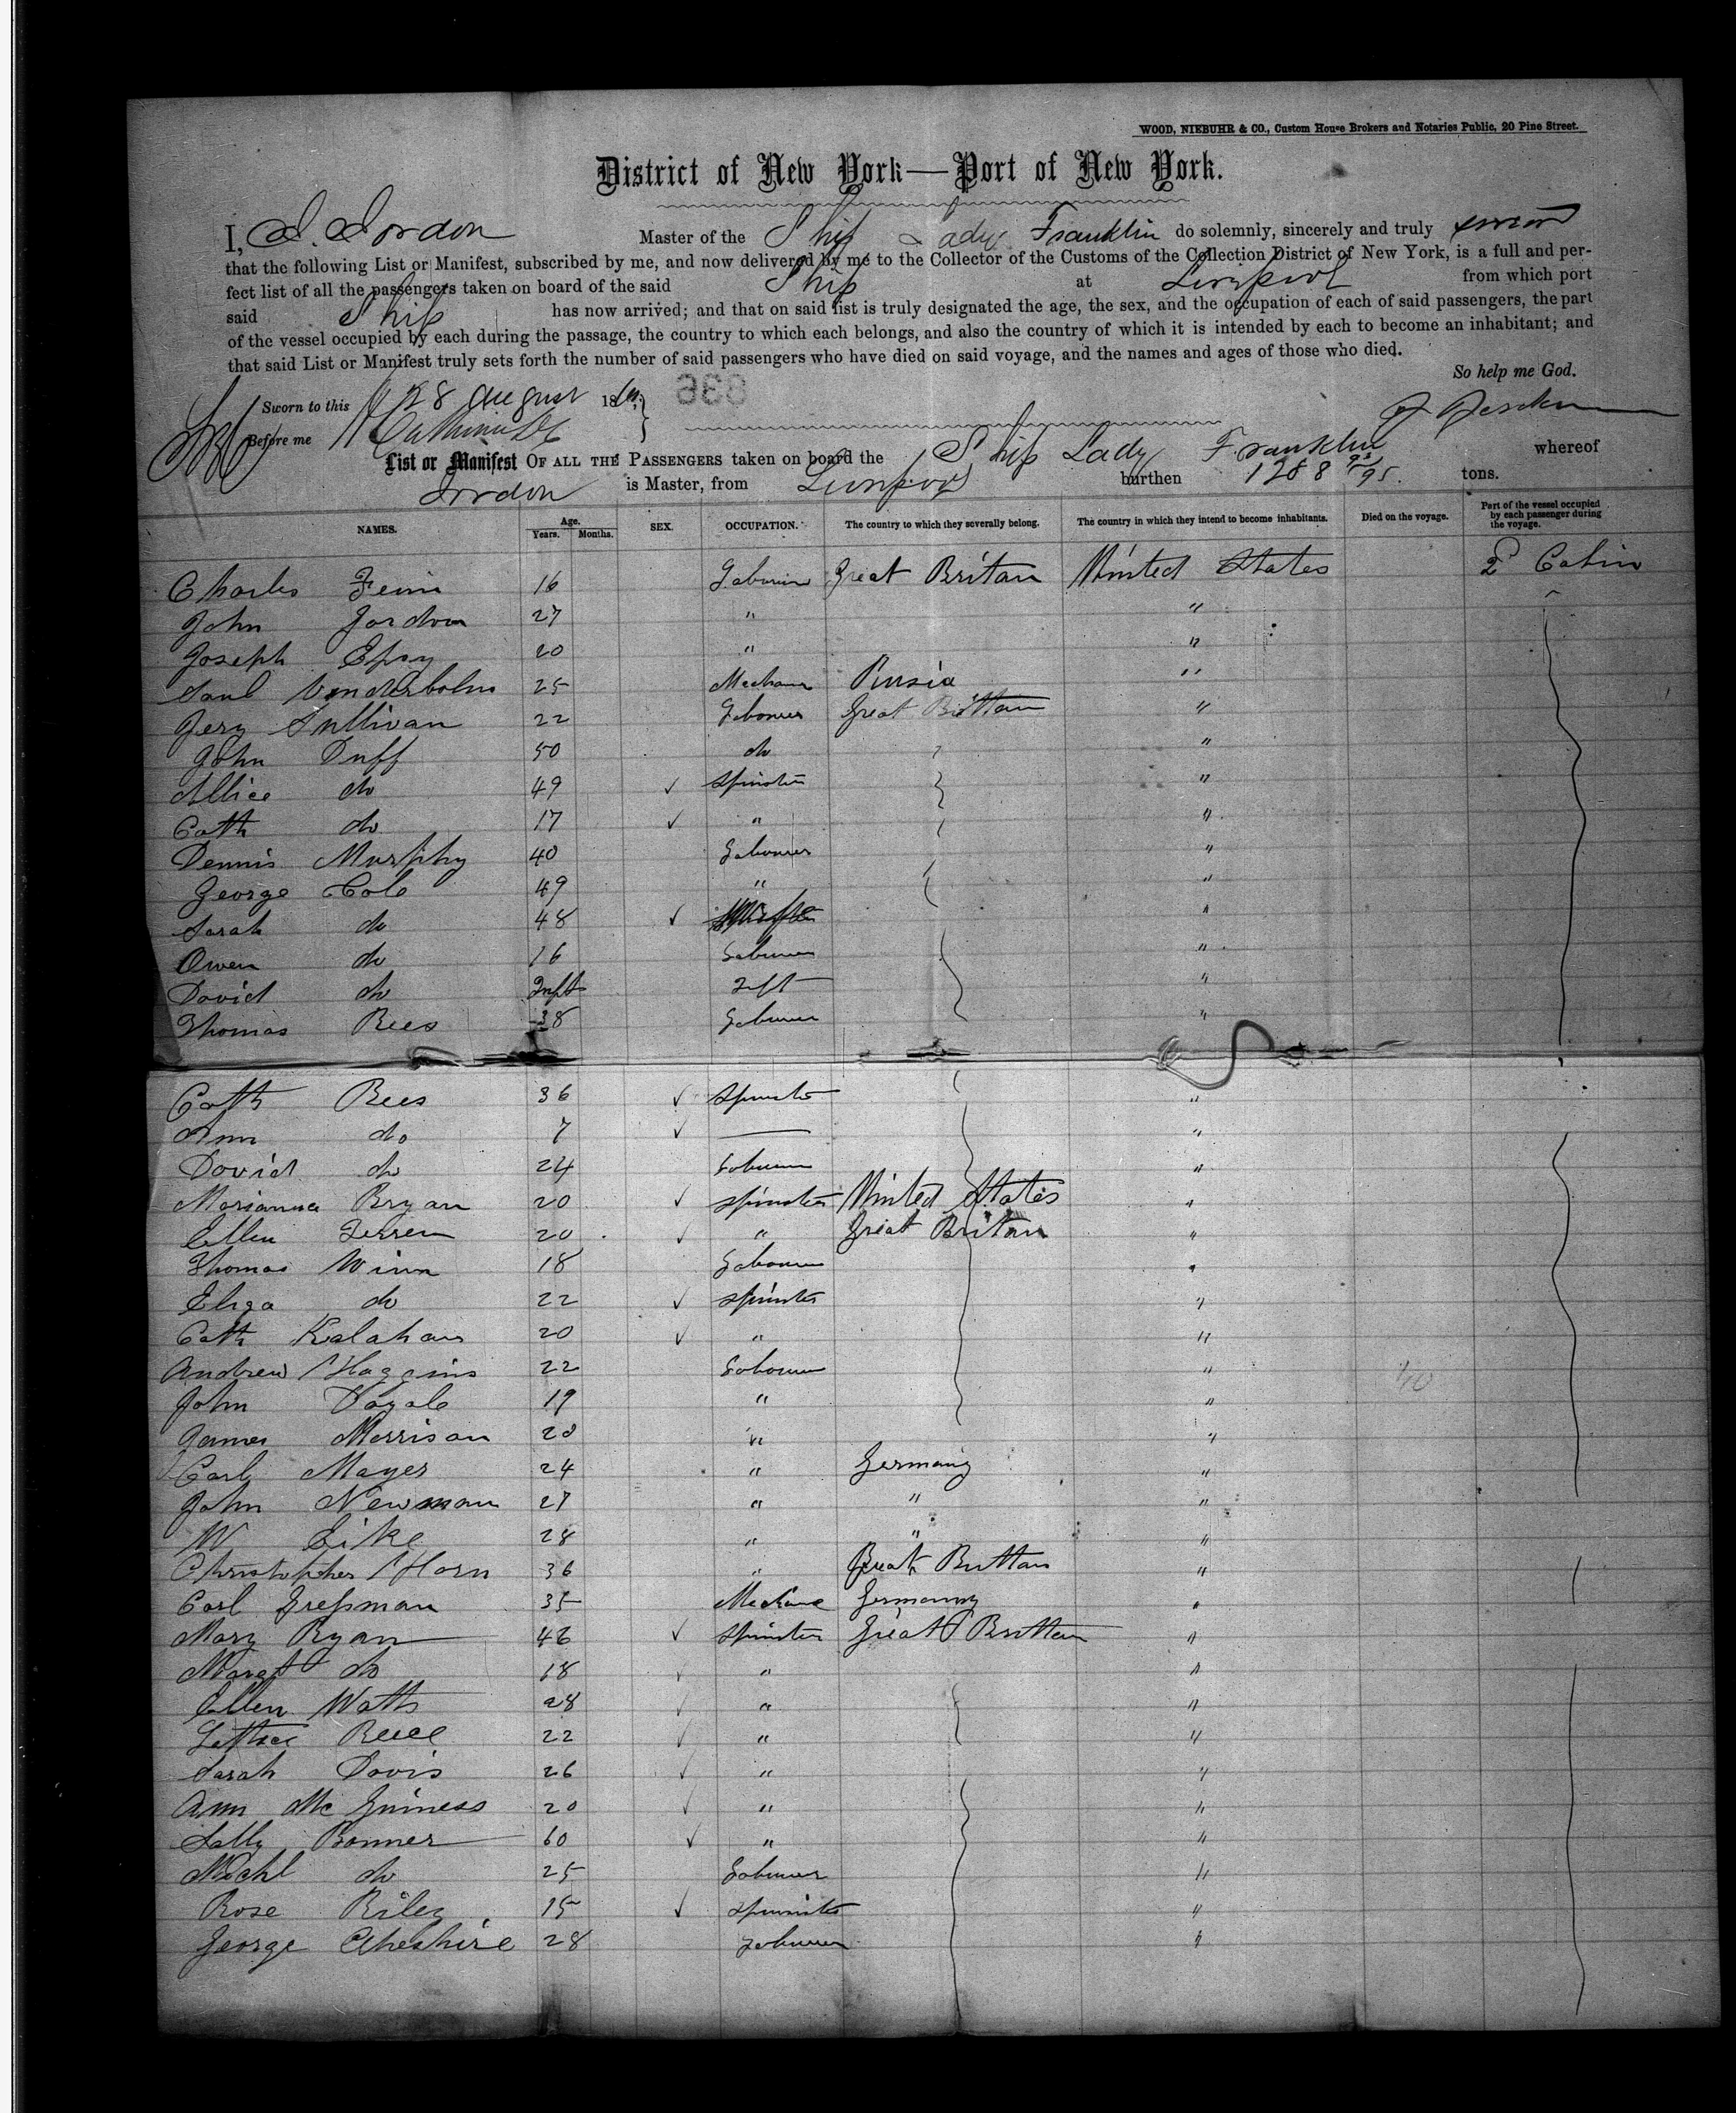 WOOD, NIEBUHR & CO., Custom House Brokers and Notaries Public, 20 Pine Street.
District of New York—Port of New York.
I, J. Jordon Master of the Ship Lady Franklin do solemnly, sincerely and truly swear
that the following List or Manifest, subscribed by me, and now delivered by me to the Collector of the Customs of the Collection District of New York, is a full and per-
fect list of all the passengers taken on board of the said Ship at Liverpool from which port
said Ship has now arrived; and that on said list is truly designated the age, the sex, and the occupation of each of said passengers, the part
of the vessel occupied by each during the passage, the country to which each belongs, and also the country of which it is intended by each to become an inhabitant; and
that said List or Manifest truly sets forth the number of said passengers who have died on said voyage, and the names and ages of those who died.
So help me God.
Sworn to this 28 august 18
936
Before me
List or Manifest OF ALL THE PASSENGERS taken on board the Ship Lady Franklin whereof
Jordon is Master, from Liverpool burthen 1288 tons.
NAMES. Age. Years. Months. SEX. OCCUPATION. The country to which they severally belong. The country in which they intend to become inhabitants. Died on the voyage. Part of the vessel occupied by each passenger during the voyage.
Charles 16 Labourer Great Britan United States 2 Cabin
John Jordon 27 " "
Joseph 20 " "
25 Mechanic "
Jery Sullivan 22 Labourer Great Brittan "
John Duff 50 do "
Allice do 49 ✓ spinster "
Cath do 17 ✓ " "
Dennis Murphy 40 Labourer "
George Cole 49 " "
Sarah do 48 ✓ "
Owen do 16 Labourer "
David do Inft Inft "
Thomas Rees 38 Labourer "
Cath Rees 36 ✓ spinster "
Ann do 7 ✓ — "
David do 24 Labourer "
Marianna Bryan 20 ✓ spinster United States "
Ellen 20 ✓ " Great Britan "
Thomas Winn 18 Labourer "
Eliza do 22 ✓ spinster "
Cath Kalahan 20 ✓ " "
Andrew Haggins 22 Labourer " 40
John Doyale 19 " "
James Morrison 20 " "
Carl Mayer 24 " Germany "
John Newman 27 " " "
W Eike 28 " " "
Christopher Horn 36 " Great Brittan "
Carl Gressman 35 Mechanic Germany "
Mary Ryan 46 ✓ spinster Great Brittan "
Margt do 18 ✓ " "
Ellen Watts 28 ✓ " "
Lettice Reece 22 ✓ " "
Sarah Davis 26 ✓ " "
Ann Mc Guiness 20 ✓ " "
Sally Bonner 60 ✓ " "
Michl do 25 Labourer "
Rose Riley 15 ✓ spinster "
George Cheshire 28 Labourer "